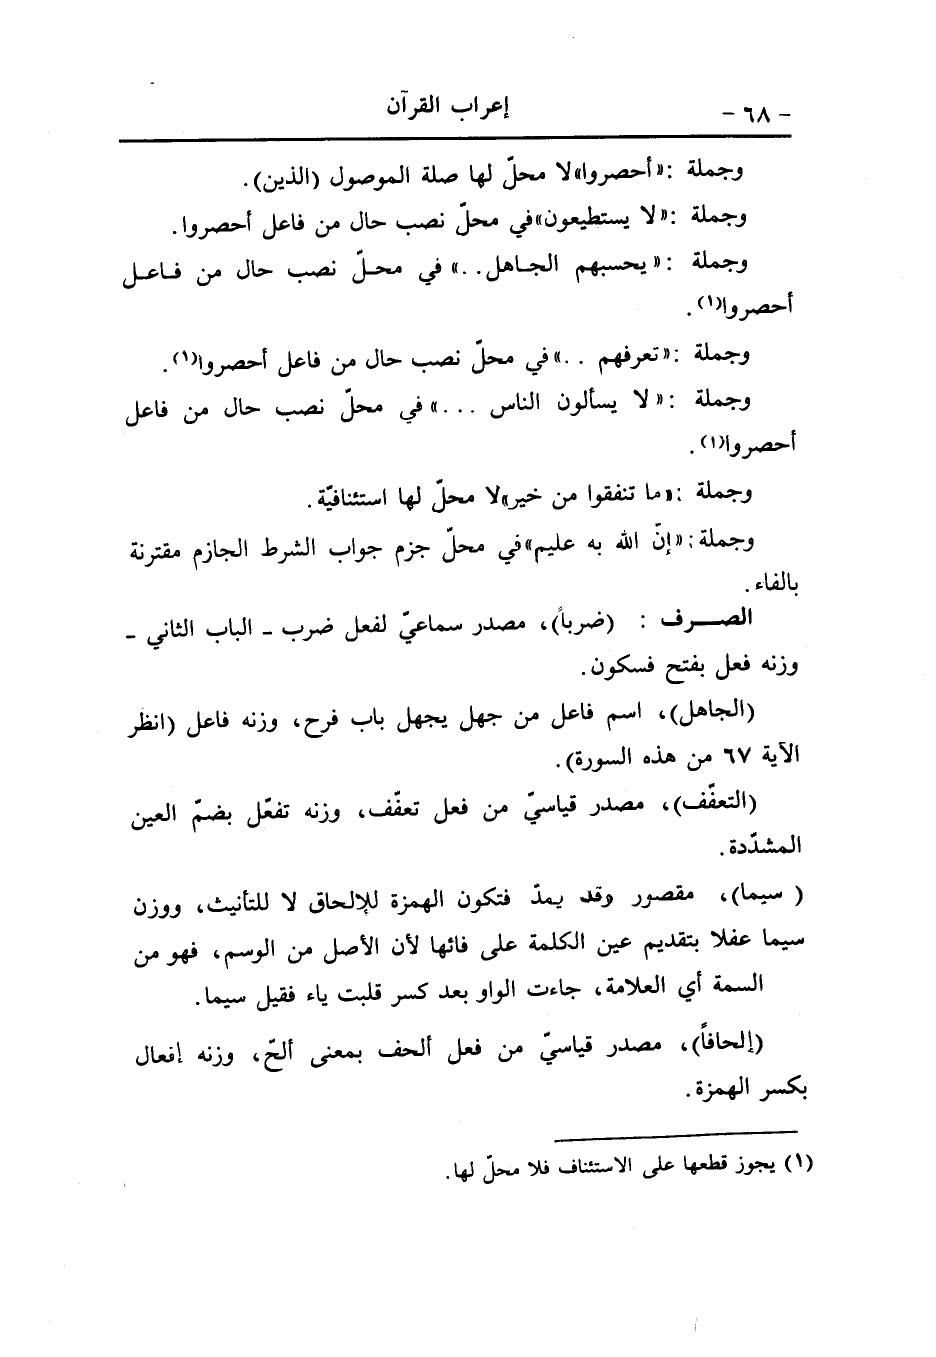 - ٦٨ -
إعراب القرآن
وجملة : «أحصروا» لا محلّ لها صلة الموصول (الذين).
وجملة : «لا يستطيعون» في محلّ نصب حال من فاعل أحصروا.
وجملة : «يحسبهم الجاهل..» في محلّ نصب حال من فاعل
أحصروا(١).
وجملة : «تعرفهم ..» في محلّ نصب حال من فاعل أحصروا(١).
وجملة : «لا يسألون الناس ...» في محلّ نصب حال من فاعل
أحصروا(١).
وجملة : «ما تنفقوا من خير» لا محلّ لها استئنافيّة.
وجملة : «إنّ الله به عليم» في محلّ جزم جواب الشرط الجازم مقترنة
بالفاء.
الصرف : (ضرباً)، مصدر سماعيّ لفعل ضرب ـ الباب الثاني ـ
وزنه فعل بفتح فسكون.
(الجاهل)، اسم فاعل من جهل يجهل باب فرح، وزنه فاعل (انظر
الآية ٦٧ من هذه السورة).
(التعفّف)، مصدر قياسيّ من فعل تعفّف، وزنه تفعّل بضمّ العين
المشدّدة.
( سيما)، مقصور وقد يمدّ فتكون الهمزة للإلحاق لا للتأنيث، ووزن
سيما عفلا بتقديم عين الكلمة على فائها لأن الأصل من الوسم، فهو من
السمة أي العلامة، جاءت الواو بعد كسر قلبت ياء فقيل سيما.
(إلحافاً)، مصدر قياسيّ من فعل ألحف بمعنى ألحّ، وزنه إفعال
بكسر الهمزة.
(١) يجوز قطعها على الاستئناف فلا محلّ لها.